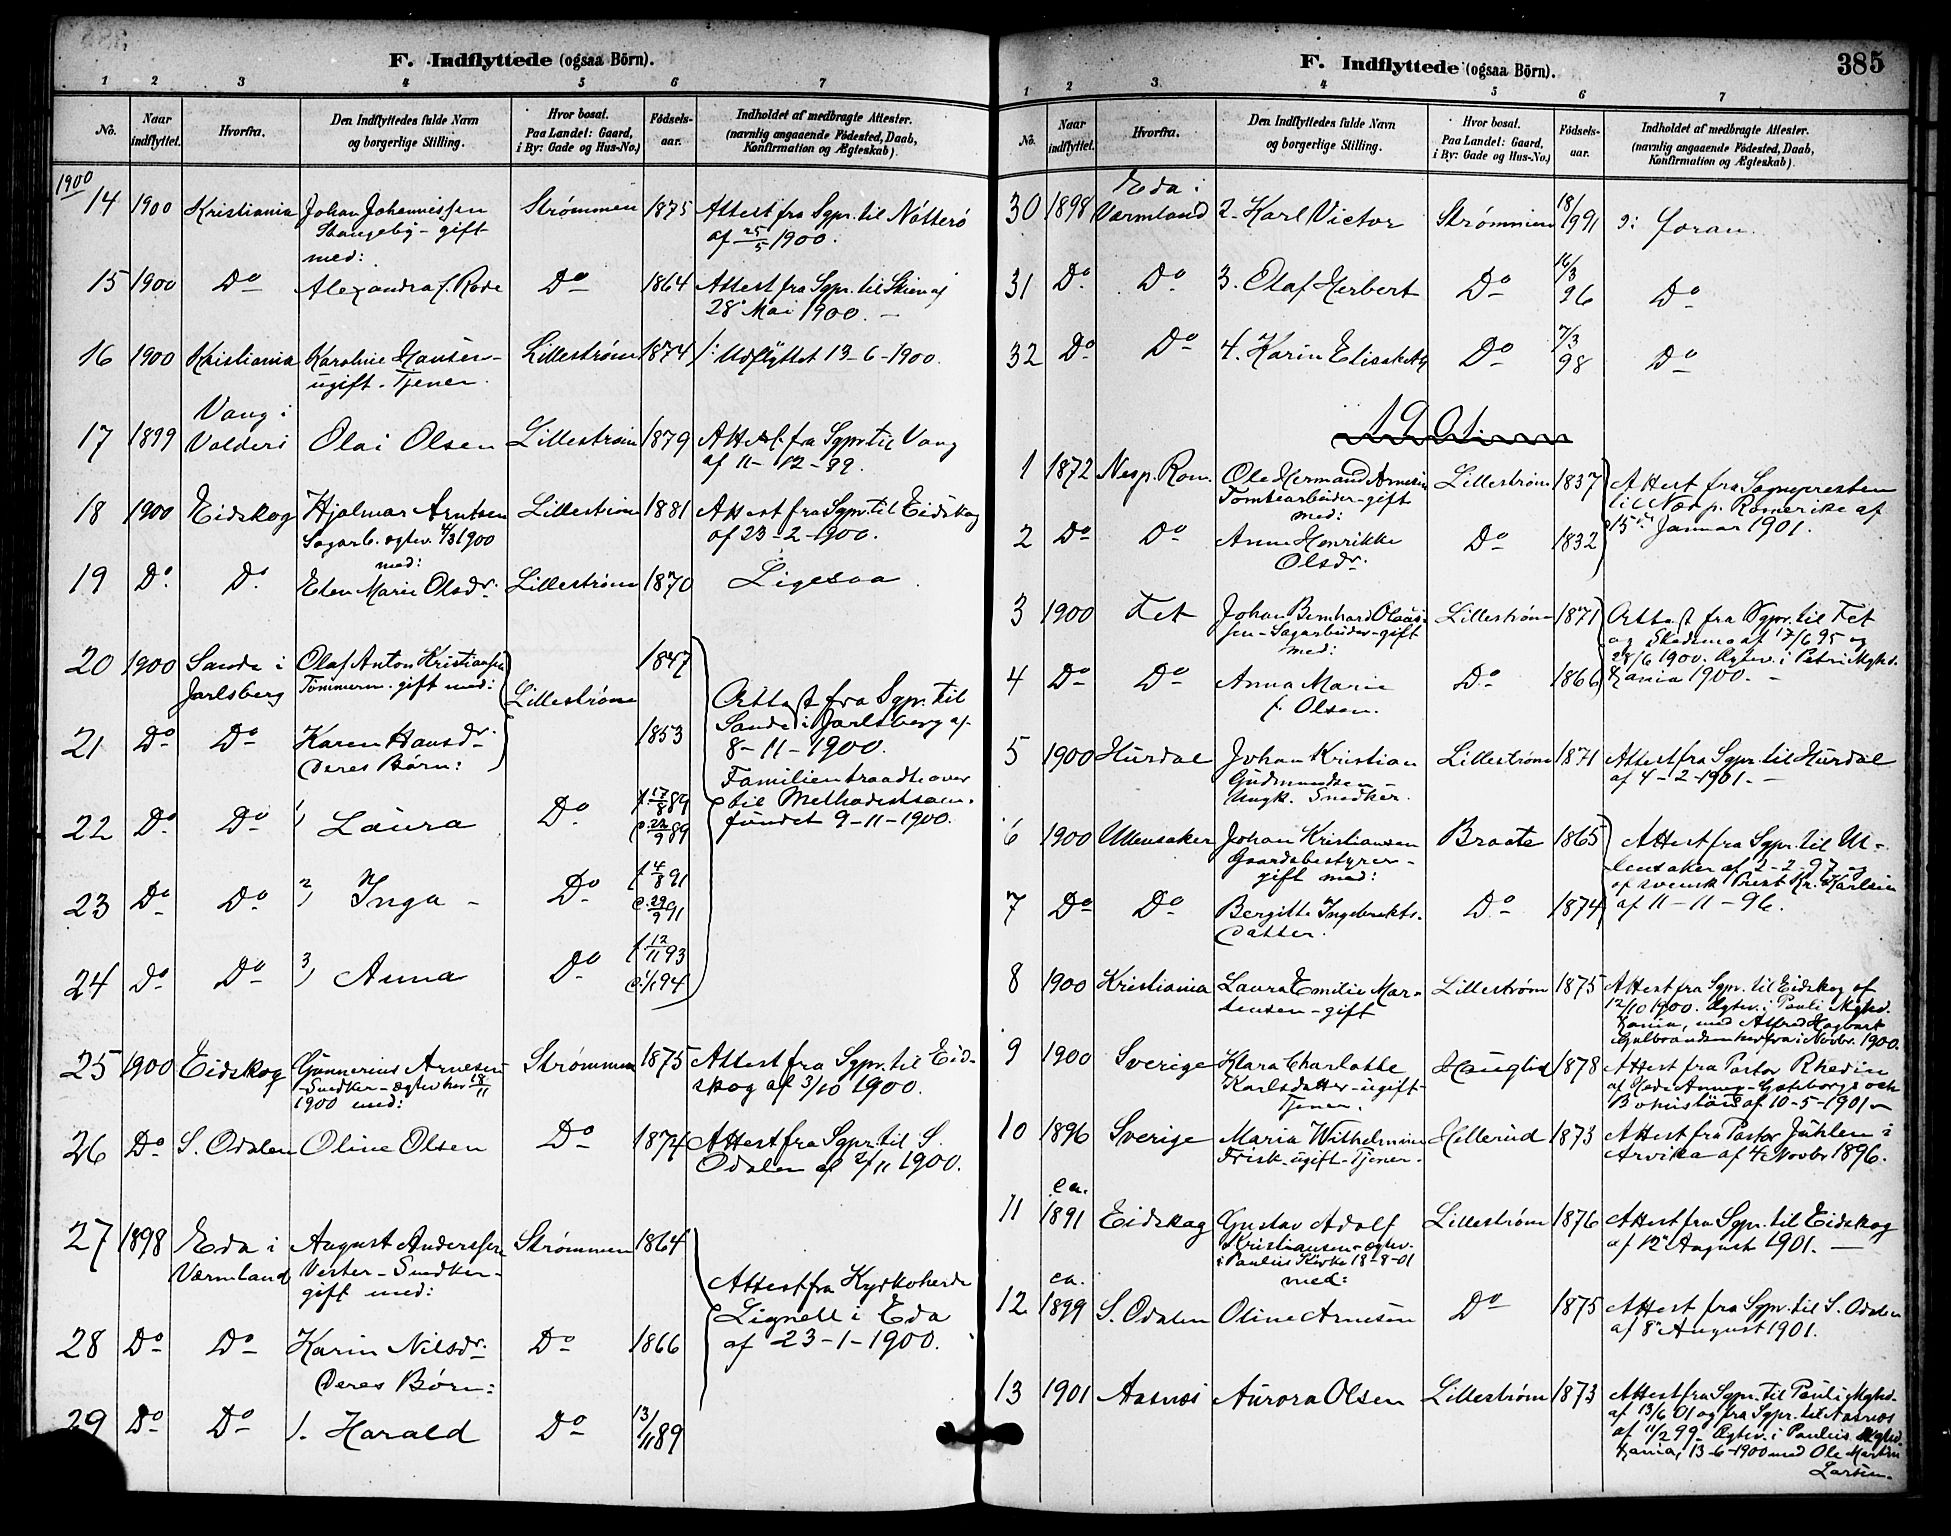 F. Indflyttede (ogsaa Börn).
1 2 3 4 5 6 7
No.
Naar indflyttet.
Hvorfra.
Den Indflyttedes fulde Navn
og borgerlige Stilling.
Hvor bosat.
Paa Landet: Gaard,
i By: Gade og Hus-No.)
Födsels-
aar.
Indholdet af medbragte Attester.
(navnlig angaaende Födested, Daab,
Konfirmation og Ægteskab).
1900
14 1900 Kristiania Johan Johannessen Strømmen 1875 Attest fra Sgpr. til Nötterö
Stangeby - gift af 25/5 1900.
med:
15 1900 Do Alexandra f. Rode Do 1864 Attest fra Sgpr. til Skien af
28 Mai 1900. -
16 1900 Kristiania Karoline Hansen - Lillestrøm 1874 /: Udflyttet 13-6-1900.
ugift - Tjener.
Vang i
17 1899 Valders Olai Olsen Lillestrøm 1879 Attest fra Sgpr. til Vang
af 11-12-99.
18 1900 Eidskog Hjalmar Arntsen Lillestrøm 1881 Attest fra Sgpr. til Eidskog
Sagarb. ægtev. 4/3 1900 af 23-2-1900.
med:
19 Do Do Elen Marie Olsdr. Lillestrøm 1870 Ligesaa.
20 1900 Sande i Olaf Anton Kristiansen 1847
Jarlsberg Tømmerm. gift med: Lillestrøm Attest fra Sgpr. til
Sande i Jarlsberg af
21 Do Do Karen Hansdr. 1853 8-11-1900.
Deres Børn: Familien traadte over
22 Do Do 1) Laura Do f. 17/8 89 til Methodistsam-
d. 22/9 89 fundet 9-11-1900.
23 Do Do 2) Inga - Do f. 4/8 91
d. 29/9 91
24 Do Do 3) Anna Do f. 12/11 93
d. 1/1 94
25 1900 Eidskog Gunnerius Arnesen Strømmen 1875 Attest fra Sgpr. til Eid-
Snedker - ægtev. her 18/11 skog af 3/10 1900.
1900 med:
26 Do S. Odalen Oline Olsen Do 1874 Attest fra Sgpr. til S.
Odalen af 2/11 1900.
27 1898 Eda i August Anderssen Strømmen 1864
Værmland Vester - Snedker - Attest fra Kyrkoherde
gift med: Lignell i Eda
28 Do Do Karin Nilsdr. Do 1866 af 23-1-1900.
Deres Børn:
29 Do Do 1. Harald Do 13/11 89
F. Indflyttede (ogsaa Börn).
385
1 2 3 4 5 6 7
No.
Naar indflyttet.
Hvorfra.
Den Indflyttedes fulde Navn
og borgerlige Stilling.
Hvor bosat.
Paa Landet: Gaard,
i By: Gade og Hus-No.)
Födsels-
aar.
Indholdet af medbragte Attester.
(navnlig angaaende Födested, Daab,
Konfirmation og Ægteskab).
Eda i
30 1898 Værmland 2. Karl Victor Strømmen 18/9 91 foran.
31 Do Do 3. Olaf Herbert Do 16/3 96 Do
32 Do Do 4. Karin Elisabeth Do 7/3 98 Do
1901
1 1872 Nesp. Rom. Ole Hermand Arnesen Lillestrøm 1837 Attest fra Sognepresten
Tomtearbeider - gift til Nes p. Romerike af
med: 15 Januar 1901.
2 Do Do Anne Henrikke Do 1832
Olsdr.
3 1900 Fet Johan Bernhard Olaus- Lillestrøm 1871 Attest fra Sgpr. til Fet
sen - Sagarbeider - gift og Skedsmo af 17/6 95 og
med: 28/6 1900. Ægtev. i Petri Mghd.
4 Do Do Anna Marie Do 1866 Kania 1900. -
f. Olsen.
5 1900 Hurdal Johan Kristian Lillestrøm 1871 Attest fra Sgpr. til Hurdal
Gudmundsen af 4-2-1901. -
Ungk. Snedker.
6 1900 Ullensaker Johan Kristiansen Braate 1865 Attest fra Sgpr. til Ul-
Gaardsbestyrer - lensaker af 2-2-97 og
gift med: af svensk Prest Kr. Karlsen
7 Do Do Bergitte Ingebrekts- Do 1874 af 11-11-96.
datter.
8 1900 Kristiania Laura Emilie Mar- Lillestrøm 1875 Attest fra Sgpr. til Eidskog af
tensen - gift 12/10 1900. Ægtev. i Pauli Mghd.
Kania, med Alfred Hagbart
Gulbrandsen herfra i Novbr. 1900.
9 1900 Sverige Klara Charlotte Hauglid 1878 Attest fra Pastor Rhedin
Karlsdatter - ugift - af Göteborgs och
Tjener. Bohuslän af 10-5-1901 -
10 1896 Sverige Maria Wilhelmina Hellerud 1873 Attest fra Pastor Juhlen i
Frisk - ugift - Tjener. Arvika af 4 Novbr 1896.
ca.
11 1891 Eidskog Gustav Adolf Lillestrøm 1876 Attest fra Sgpr. til Eidskog
Kristiansen - ægtev. af 12 August 1901. -
i Paulus Kirke 18-8-01
med:
ca.
12 1899 S. Odalen Oline Arnesen Do 1875 Attest fra Sgpr. til S. Odalen
af 8 August 1901.
13 1901 Aasnes Aurora Olsen Lillestrøm 1873 Attest fra Sgpr. til Pauli Mghd.
af 13/6 01 og fra Sgpr. til Aasnes
af 11/2 99. Ægtev. i Paulus Mghd.
Kania, 13-6-1900 med Ole Martin
Larsen.